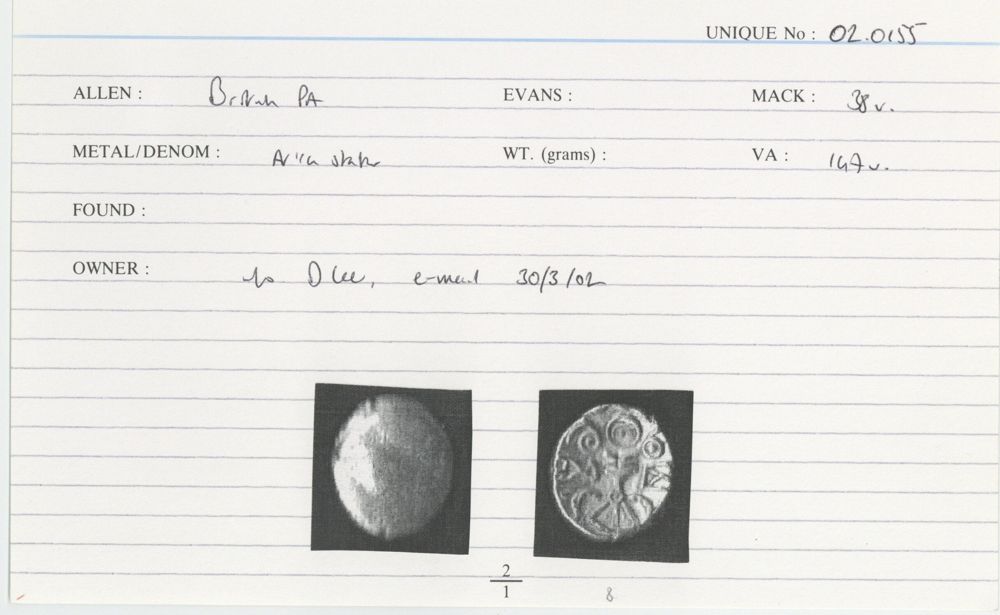 UNIQUE No : 02.0155
ALLEN : British PA EVANS : MACK : 38 v.
METAL/DENOM : WT. (grams) : VA : 147 v.
FOUND :
OWNER : D Lee, e-mail 30/3/02
2
1
8